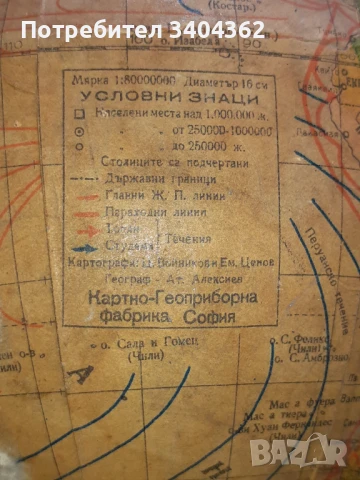 Потребител 3404362
(Костар.)
110
100 о. Изабела 90
Мярка 1:80000000 Диаметър 16 см
УСЛОВНИ ЗНАЦИ
Населени места над 1.000.000 ж.
„ „ от 250000-1000000
„ „ до 250000 ж.
Столиците са подчертани
Държавни граници
Главни Ж. П. линии
Параходни линии
Топли
Течения
Студени
Картографи: Ц. Войников и Ем. Ценов
Географ - Ат. Алексиев
Картно-Геоприборна
фабрика София
Перуанско течение
о. Сала и Гомец
(Чили)
о. С. Феликс
(Чили)
о. С. Амброзио
Мас а фуера
Мас а тиера
о-ви Хуан Фернандес
BAZAR
bg